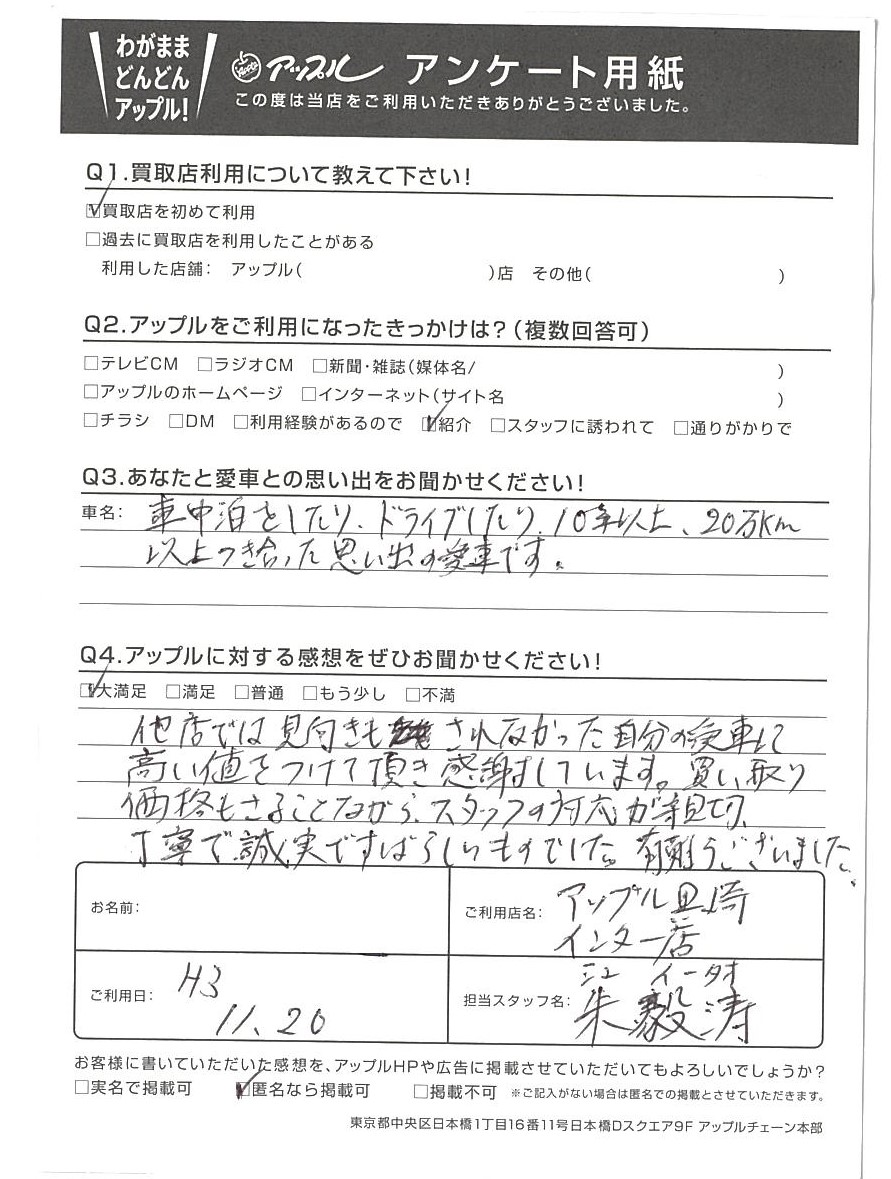 わがまま
どんどん
アップル!
アップル アンケート用紙
この度は当店をご利用いただきありがとうございました。
Q1.買取店利用について教えて下さい!
☑買取店を初めて利用
□過去に買取店を利用したことがある
利用した店舗: アップル( )店 その他( )
Q2.アップルをご利用になったきっかけは?(複数回答可)
□テレビCM □ラジオCM □新聞・雑誌(媒体名/ )
□アップルのホームページ □インターネット(サイト名 )
□チラシ □DM □利用経験があるので ☑紹介 □スタッフに誘われて □通りがかりで
Q3.あなたと愛車との思い出をお聞かせください!
車名: 車中泊をしたり、ドライブしたり、10年以上、20万km
以上つき合った思い出の愛車です。
Q4.アップルに対する感想をぜひお聞かせください!
☑大満足 □満足 □普通 □もう少し □不満
他店では見向きもされなかった自分の愛車に
高い値をつけて頂き感謝しています。買い取り
価格もさることながら、スタッフの対応が親切、
丁寧で誠実ですばらしいものでした。有難うございました。
お名前:
ご利用店名: アップル
インター店
ご利用日: H3
11.20
担当スタッフ名: 朱毅涛
お客様に書いていただいた感想を、アップルHPや広告に掲載させていただいてもよろしいでしょうか?
□実名で掲載可 ☑匿名なら掲載可 □掲載不可 ※ご記入がない場合は匿名での掲載とさせていただきます。
東京都中央区日本橋1丁目16番11号日本橋Dスクエア9F アップルチェーン本部